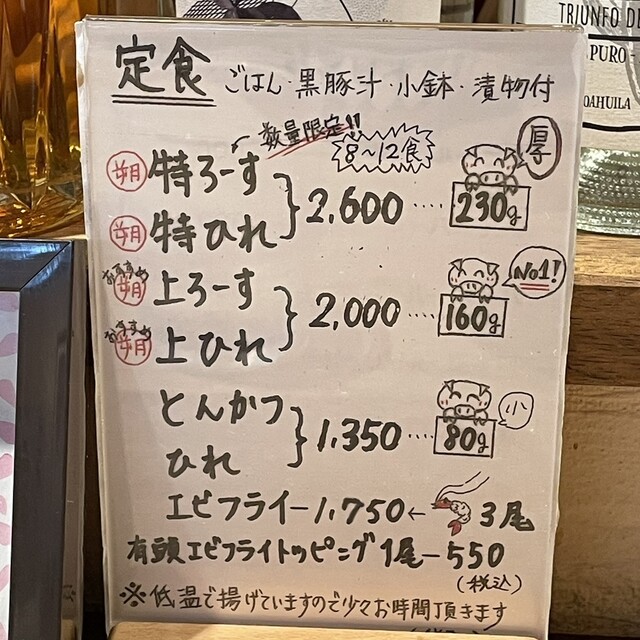 TRIUNFO DE
PURO
OAHUILA
定食 ごはん・黒豚汁・小鉢・漬物付
数量限定!!
8〜12食
特ろーす
特ひれ
2,600 ‥‥ 230g
厚
おすすめ
上ろーす
おすすめ
上ひれ
2,000 ‥‥ 160g
No1!
とんかつ
ひれ
1,350 ‥‥ 80g
小
エビフライー1,750← 3尾
有頭エビフライトッピング1尾ー550
(税込)
※低温で揚げていますので少々お時間頂きます